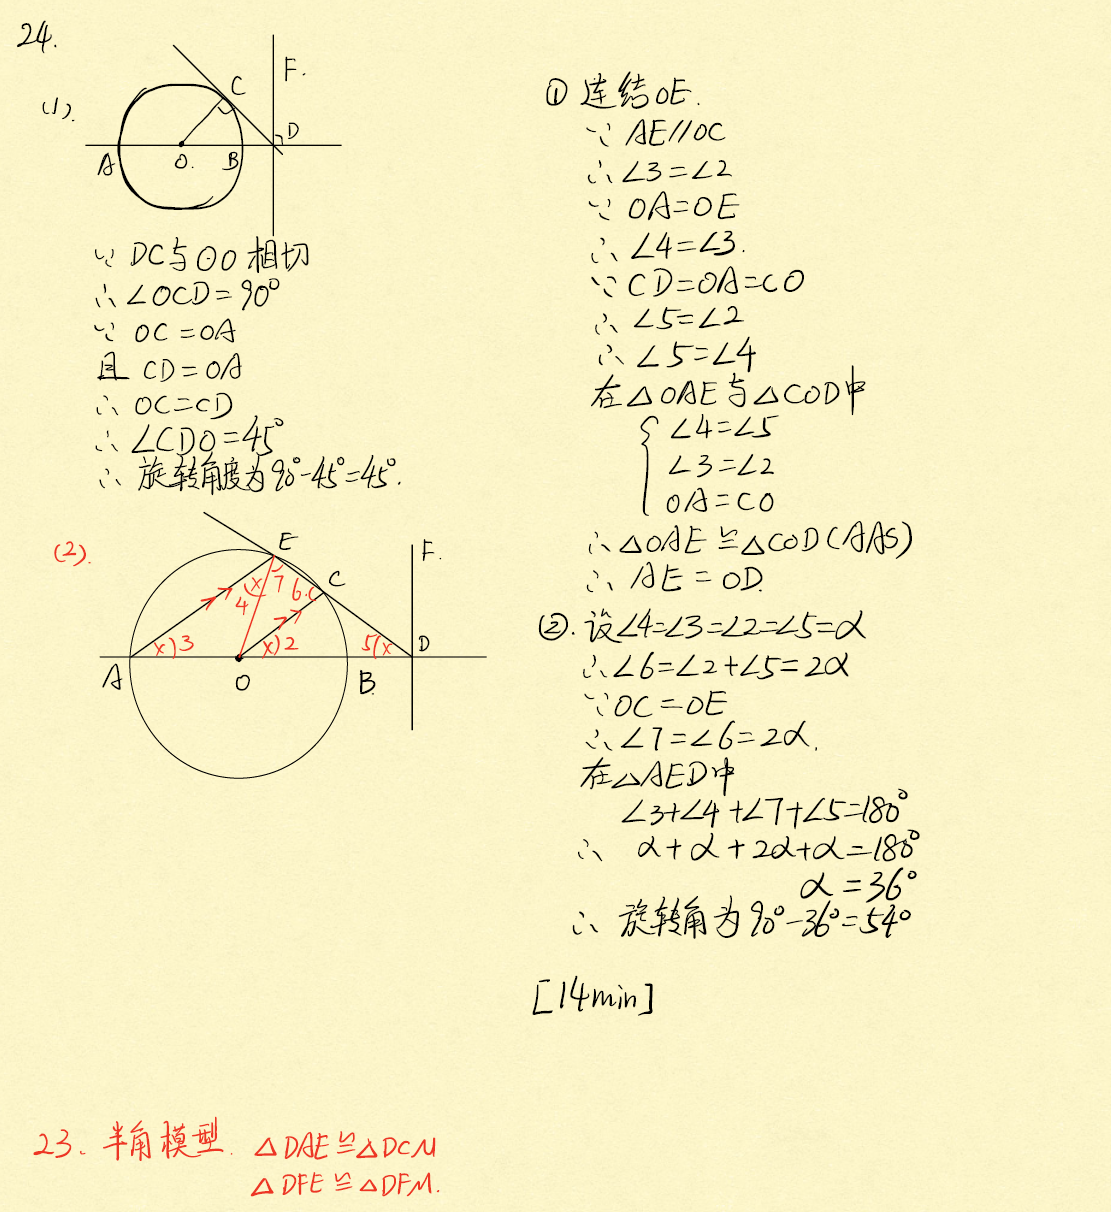 24.
(1).
F.
C
D
A
O.
B
∵ DC与⊙O相切
∴ ∠OCD=90°
∵ OC=OA
且 CD=OA
∴ OC=CD
∴ ∠CDO=45°
∴ 旋转角度为90°-45°=45°.
(2).
E
F.
C
x 7 6
4
x)3
x)2
5(x
D
A
O
B.
① 连结OE.
∵ AE//OC
∴ ∠3=∠2
∵ OA=OE
∴ ∠4=∠3.
∵ CD=OA=CO
∴ ∠5=∠2
∴ ∠5=∠4
在△OAE与△COD中
{ ∠4=∠5
∠3=∠2
OA=CO
∴ △OAE≌△COD(AAS)
∴ AE=OD.
②. 设∠4=∠3=∠2=∠5=α
∴ ∠6=∠2+∠5=2α
∵ OC=OE
∴ ∠7=∠6=2α.
在△AED中
∠3+∠4+∠7+∠5=180°
∴ α+α+2α+α=180°
α=36°
∴ 旋转角为90°-36°=54°
[14min]
23. 半角模型. △DAE≌△DCM
△DFE≌△DFM.